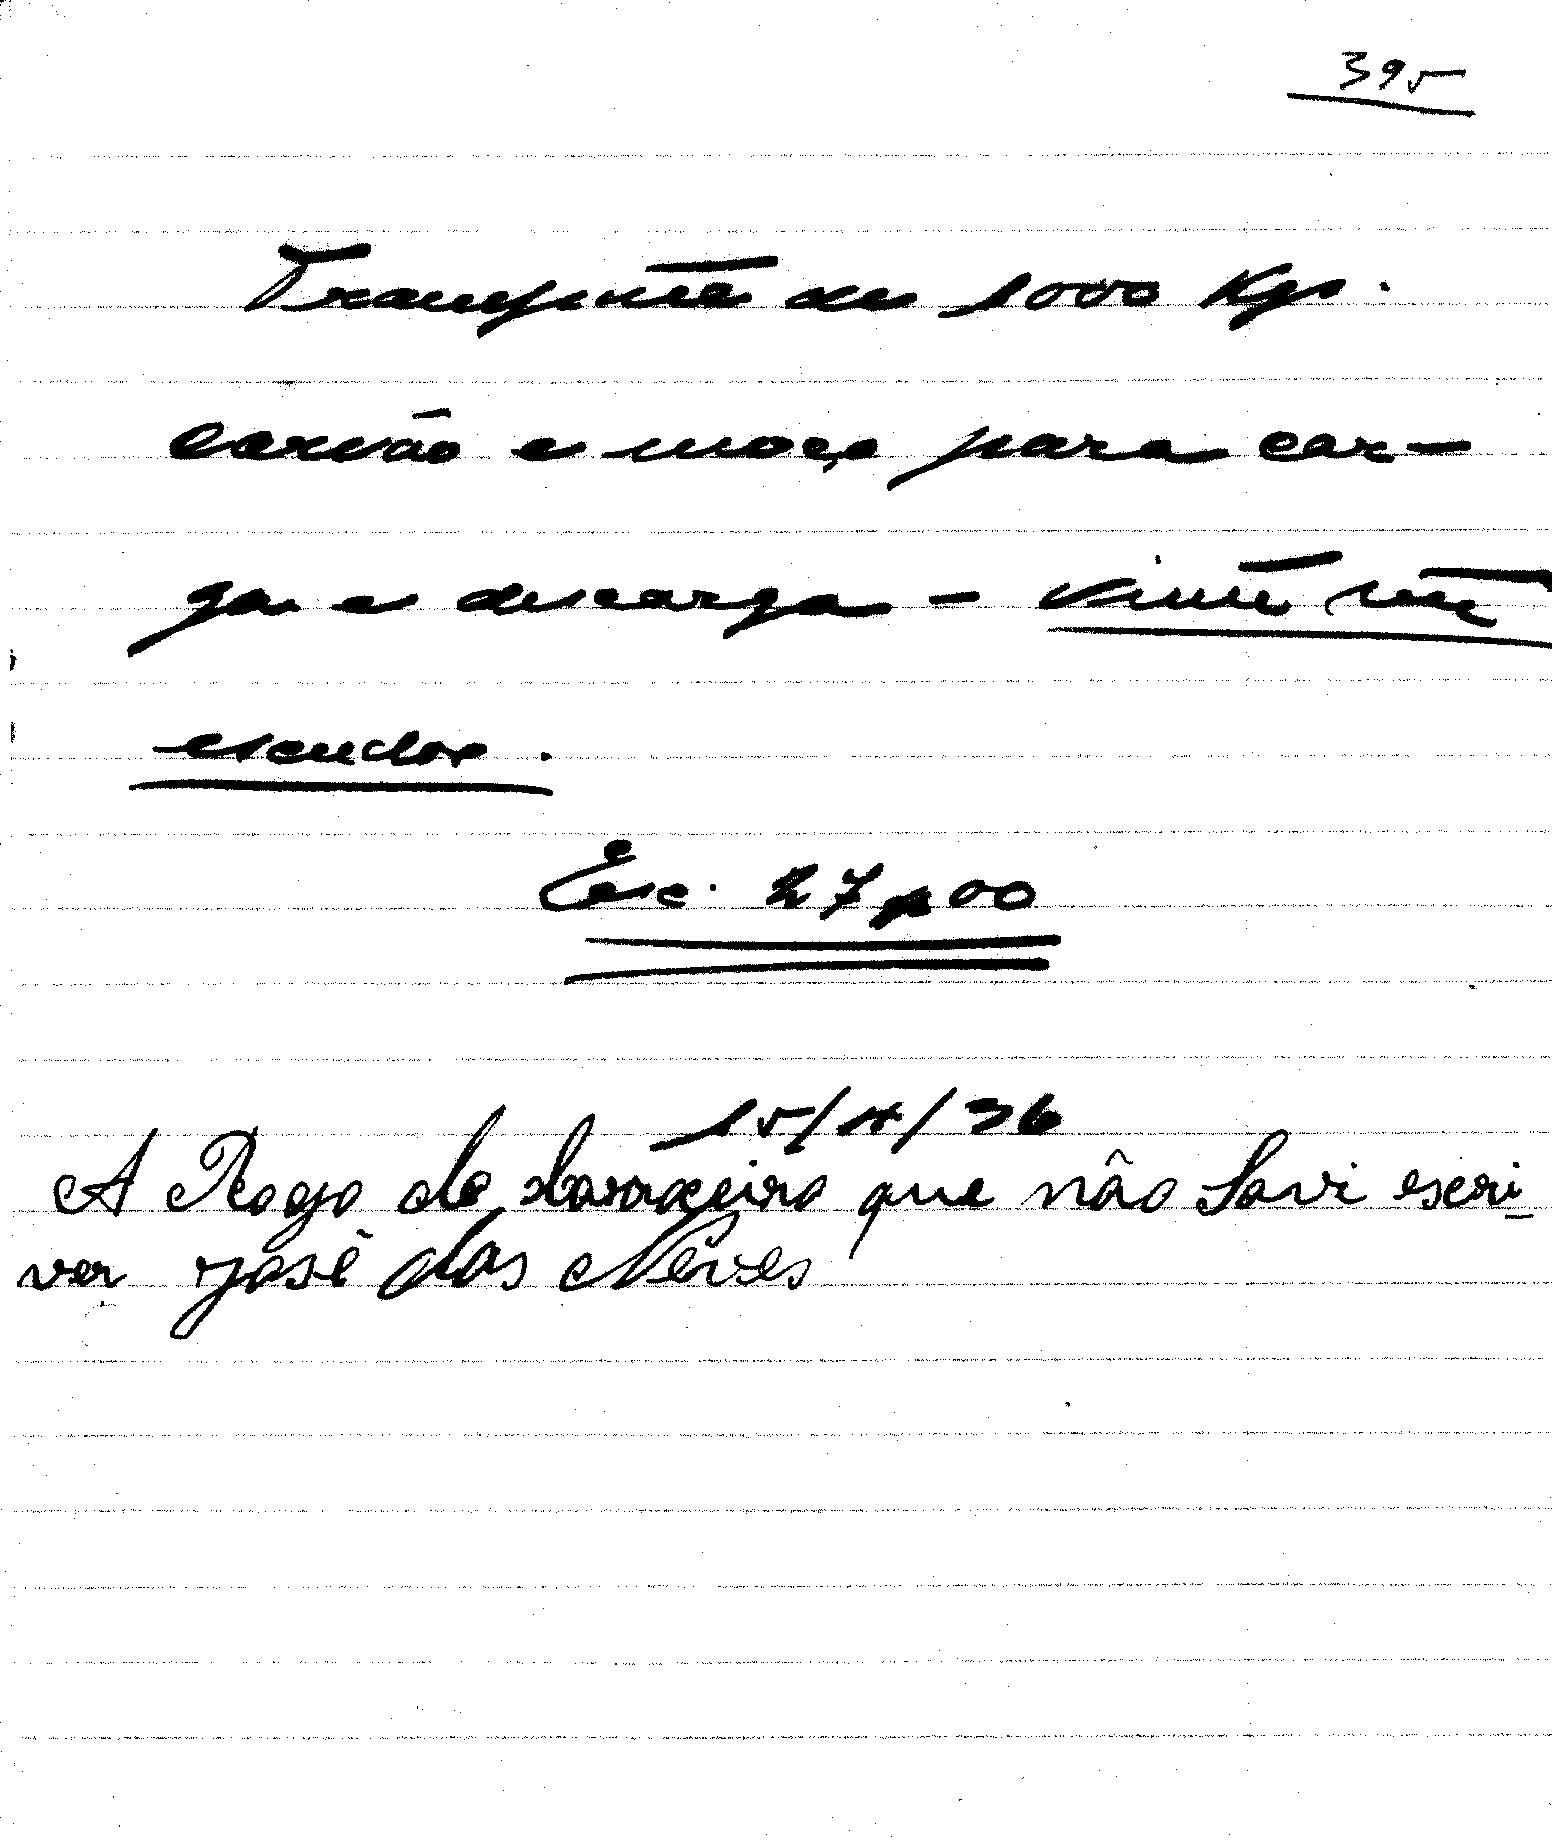 395
Transporte de 1000 Kgs.
carvão e moço para car-
ga e descarga - vinte sete
escudos.
Esc. 27$00
15/4/36
A Rogo do que não Savi escri-
ver José das Neves